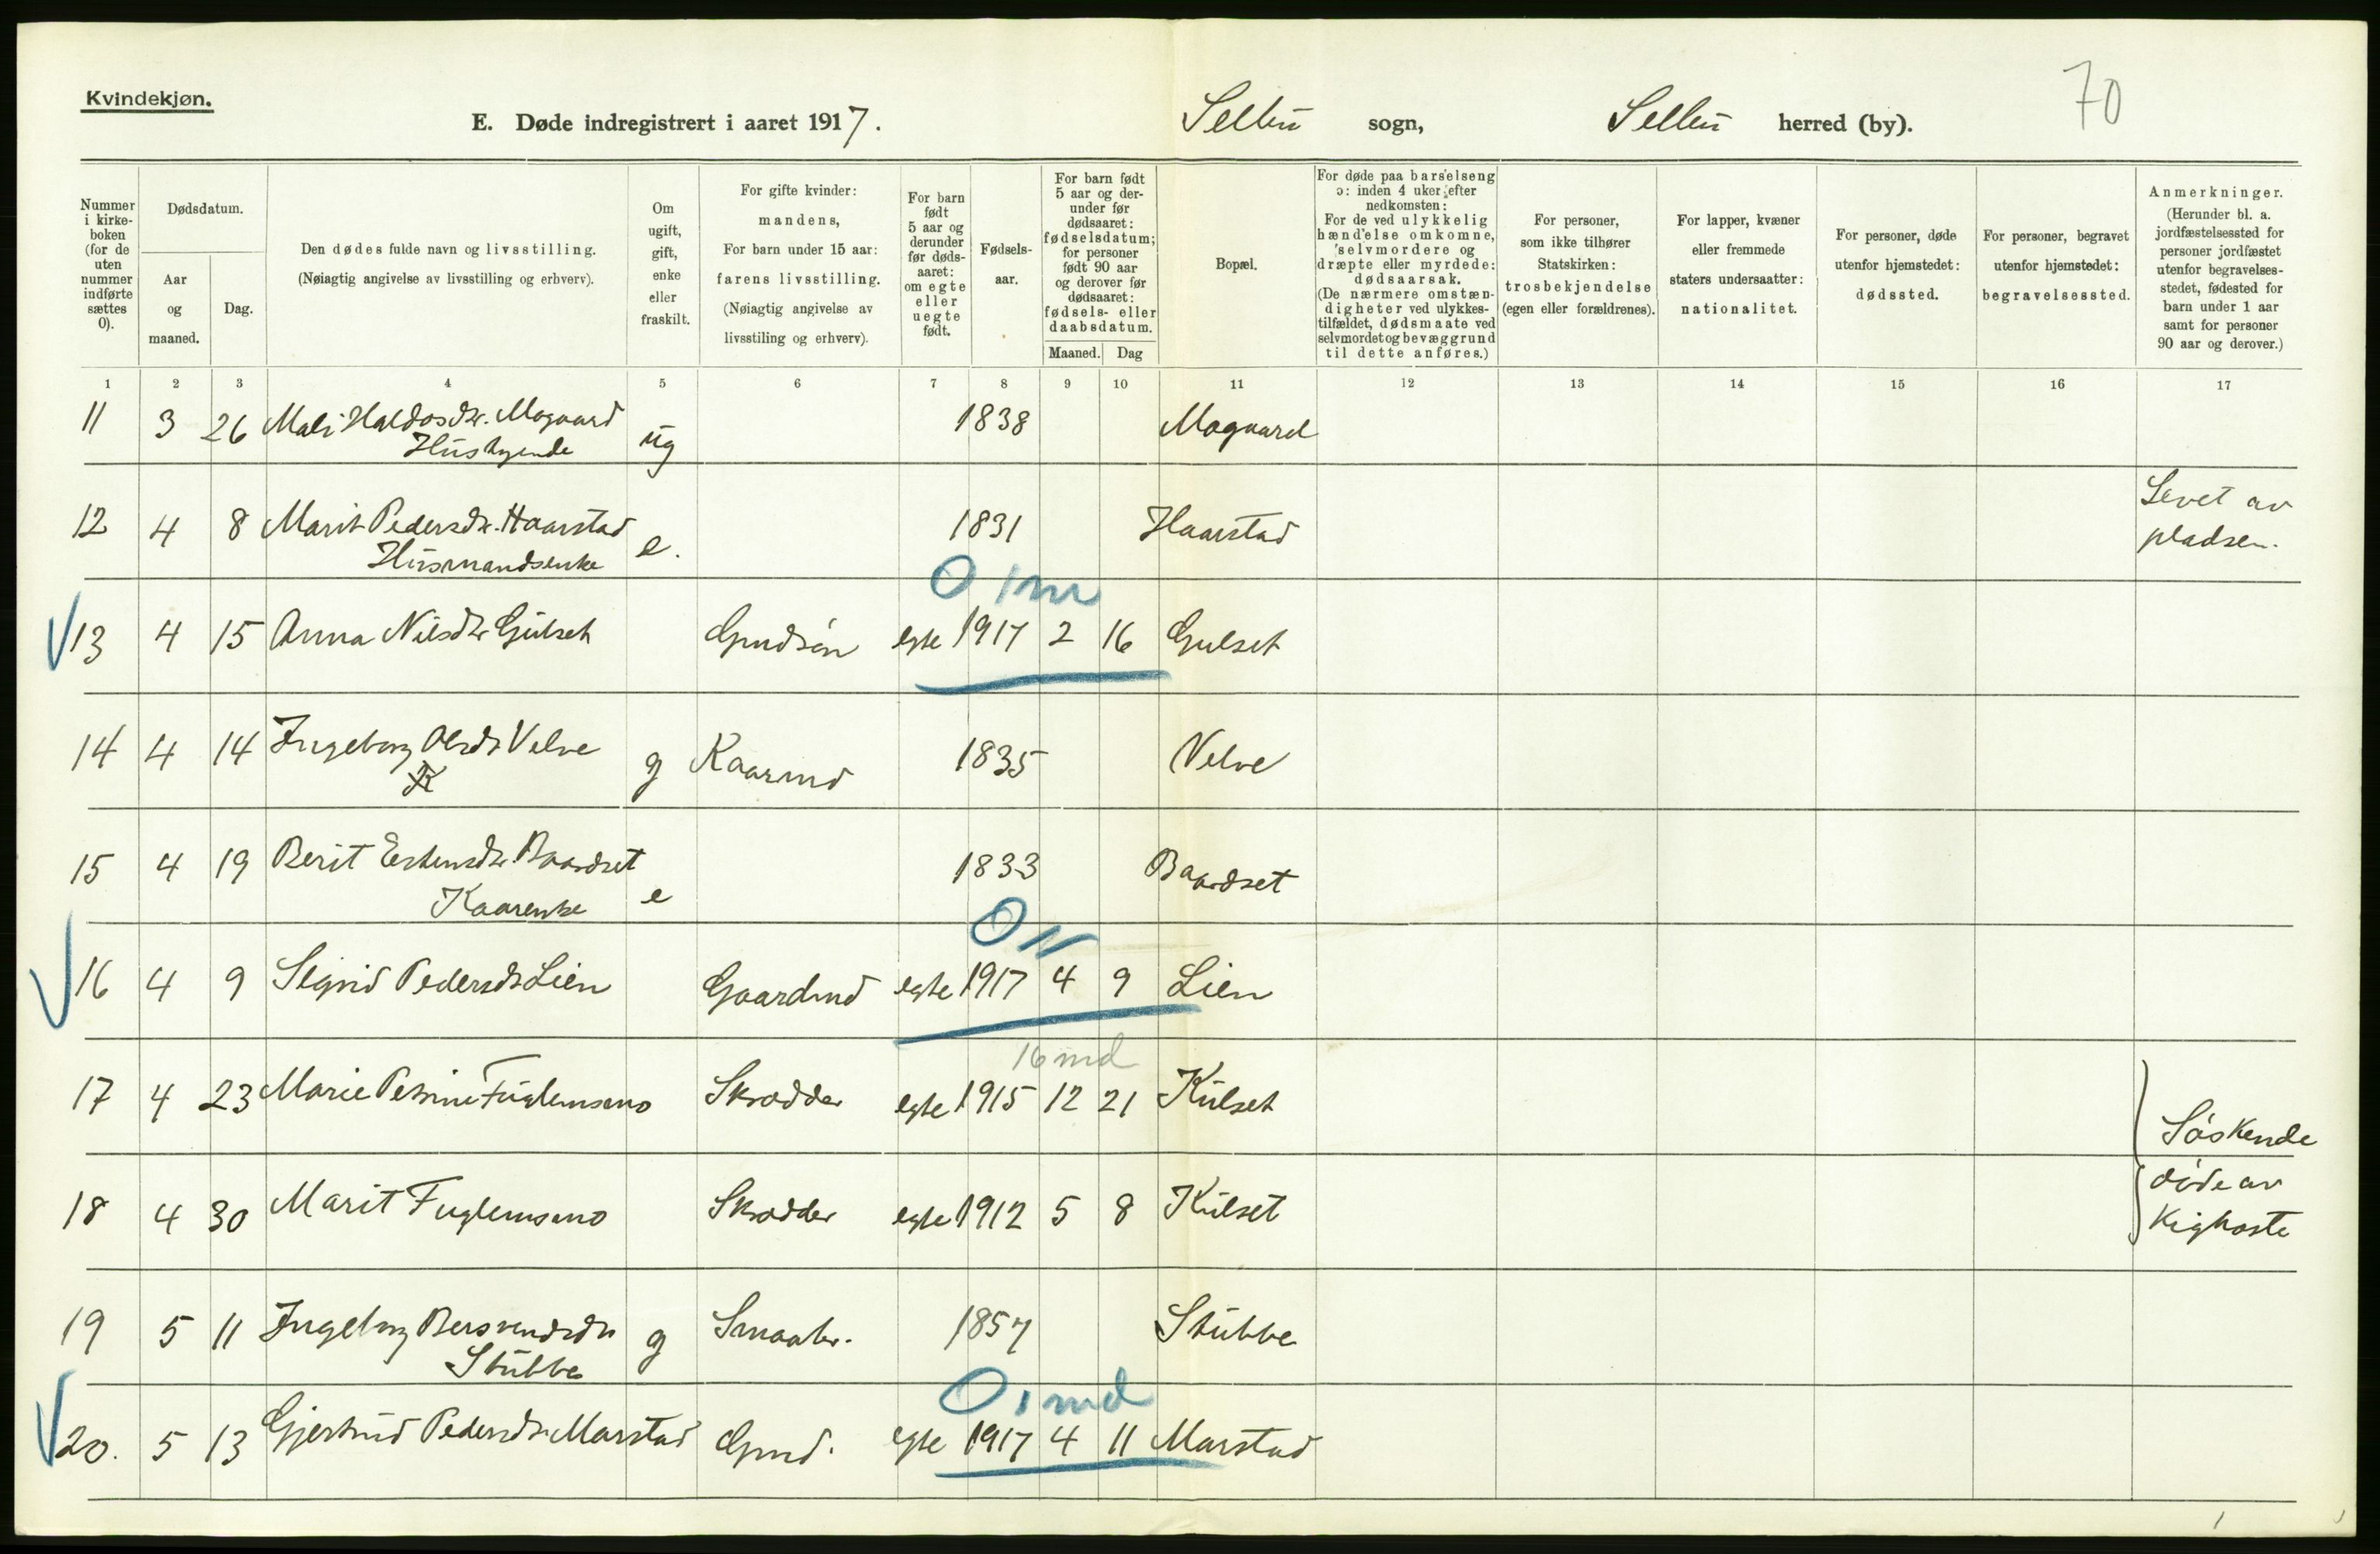 Kvindekjøn.
E. Døde indregistrert i aaret 1917. Selbu sogn, Selbu herred (by). 70
Nummer i kirke-boken (for de uten nummer indførte sættes 0).
Dødsdatum.
Aar og maaned.
Dag.
Den dødes fulde navn og livsstilling.
(Nøiagtig angivelse av livsstilling og erhverv).
Om ugift, gift, enke eller fraskilt.
For gifte kvinder: mandens,
For barn under 15 aar: farens livsstilling.
(Nøiagtig angivelse av livsstiling og erhverv).
For barn født 5 aar og derunder før døds-aaret: om egte eller uegte født.
Fødsels-aar.
For barn født 5 aar og der-under før dødsaaret: fødselsdatum; for personer født 90 aar og derover før dødsaaret: fødsels- eller daabsdatum.
Maaned. Dag
Bopæl.
For døde paa barselseng ɔ: inden 4 uker efter nedkomsten:
For de ved ulykkelig hændelse omkomne, selvmordere og dræpte eller myrdede: dødsaarsak.
(De nærmere omstæn-digheter ved ulykkes-tilfældet, dødsmaate ved selvmordet og bevæggrund til dette anføres.)
For personer, som ikke tilhører Statskirken: trosbekjendelse (egen eller forældrenes).
For lapper, kvæner eller fremmede staters undersaatter: nationalitet.
For personer, døde utenfor hjemstedet: dødssted.
For personer, begravet utenfor hjemstedet: begravelsessted.
Anmerkninger.
(Herunder bl. a. jordfæstelsessted for personer jordfæstet utenfor begravelses-stedet, fødested for barn under 1 aar samt for personer 90 aar og derover.)
1 2 3 4 5 6 7 8 9 10 11 12 13 14 15 16 17
11 3 26 Mali Haldosdr. Mogaard ug 1838 Mogaard
12 4 8 Marit Pedersdr. Haarstad e. 1831 Haarstad Levet av
Husmandsenke pladsen.
0 1 m
13 4 15 Anna Nilsdr Gulset egte 1917 2 16 Gulset
14 4 14 Ingeborg Olsdr Velve g Kaarmd 1835 Velve
15 4 19 Berit Estensdr Baardset e 1833 Baardset
Kaarenke
0
16 4 9 Sigrid Pedersdr Lien Gaardmd egte 1917 4 9 Lien
16 md
17 4 23 Marie Petrine Fuglemsmo Skrædder egte 1915 12 21 Kulset Søskende
18 4 30 Marit Fuglemsmo Skrædder egte 1912 5 8 Kulset døde av
Kighoste
19 5 11 Ingeborg Bersvendsdr g Smaabr. 1857 Stubbe
Stubbe
0 1 md
20. 5 13 Gjertrud Pedersdr Marstad Gmd. egte 1917 4 11 Marstad